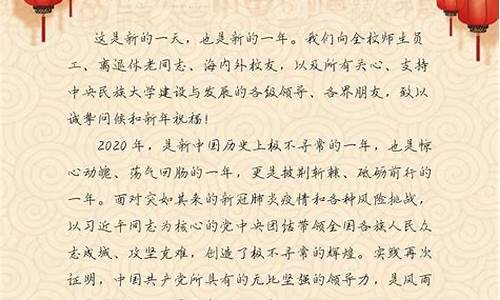 这是新的一天，也是新的一年。我们向全校师生员
工、离退休老同志、海内外校友，以及所有关心、支持
中央民族大学建设与发展的各级领导、各界朋友，致以
诚挚问候和新年祝福！
2020年，是新中国历史上极不寻常的一年，也是惊
心动魄、荡气回肠的一年，更是披荆斩棘、砥砺前行的
一年。面对突如其来的新冠肺炎疫情和各种风险挑战，
以习近平同志为核心的党中央团结带领全国各族人民众
志成城、攻坚克难，创造了极不寻常的辉煌。实践再次
证明，中国共产党所具有的无比坚强的领导力，是风雨